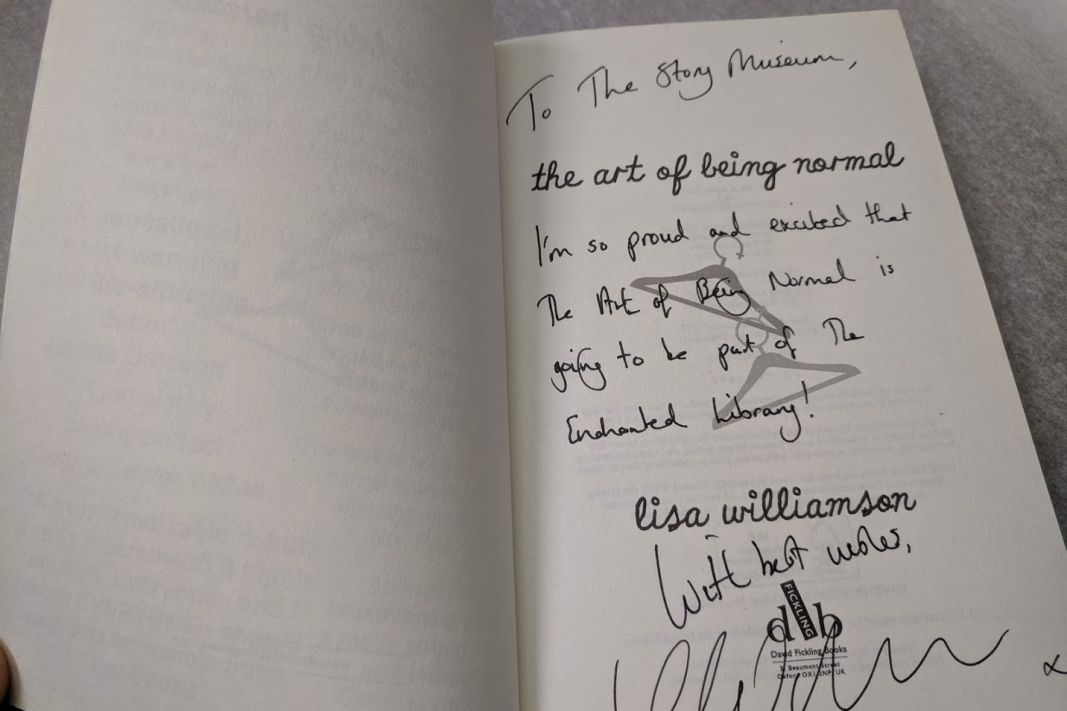 To The Story Museum,
the art of being normal
I'm so proud and excited that
The Art of Being Normal is
going to be part of The
Enchanted Library!
lisa williamson
With best wishes,
FICKLING
dfb
David Fickling Books
31 Beaumont Street
Oxford OX1 2NP, UK
x